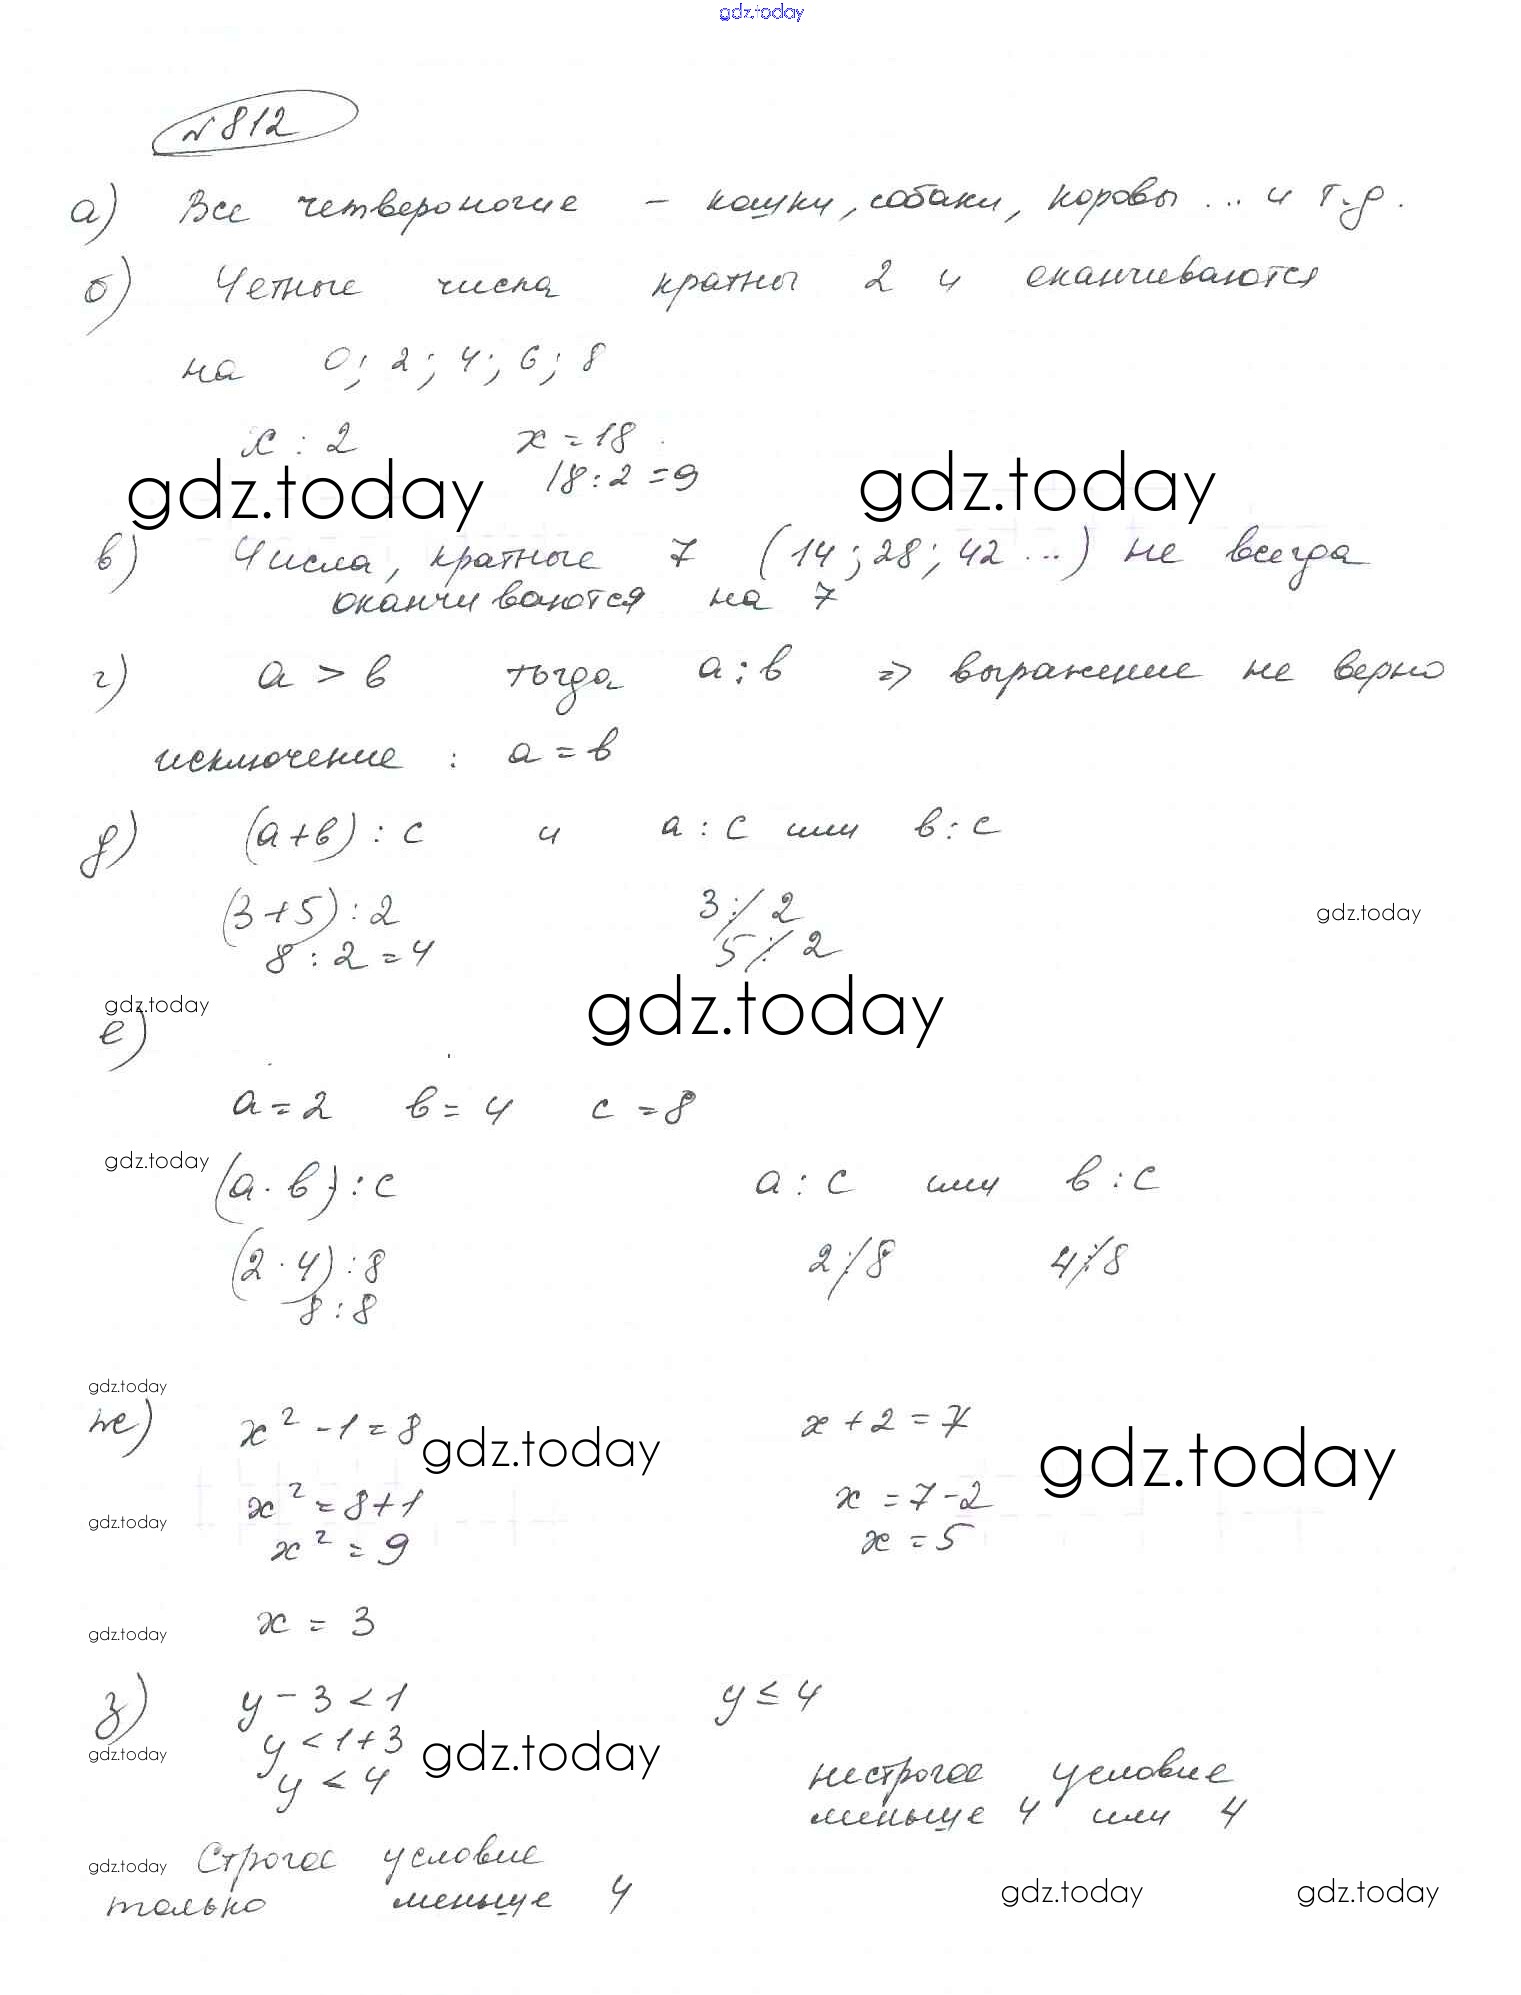 gdz.today
№ 812
а) Все четвероногие – кошки, собаки, коровы ... и т.д.
б) Четные числа кратны 2 и оканчиваются
на 0; 2; 4; 6; 8
x : 2 x = 18
18 : 2 = 9
gdz.today gdz.today
в) Числа, кратные 7 (14; 28; 42 ...) не всегда
оканчиваются на 7
г) a > b тогда a : b ⇒ выражение не верно
исключение : a = b
д) (a + b) : c и a : c или b : c
(3 + 5) : 2 3 ⁒ 2
gdz.today
8 : 2 = 4 5 ⁒ 2
gdz.today gdz.today
е)
a = 2 b = 4 c = 8
gdz.today
(a · b) : c a : c или b : c
(2 · 4) : 8 2 ⁒ 8 4 ⁒ 8
8 : 8
gdz.today
ж) x² – 1 = 8 x + 2 = 7
gdz.today gdz.today
x² = 8 + 1 x = 7 – 2
gdz.today
x² = 9 x = 5
gdz.today
x = 3
з) y – 3 < 1 y ≤ 4
y < 1 + 3
gdz.today gdz.today
y < 4 нестрогое условие
меньше 4 или 4
gdz.today
Строгое условие
только меньше 4
gdz.today gdz.today